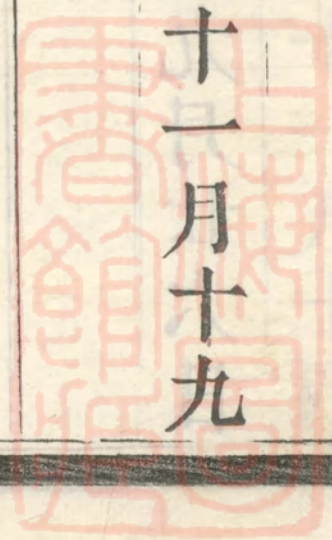 十一月十九